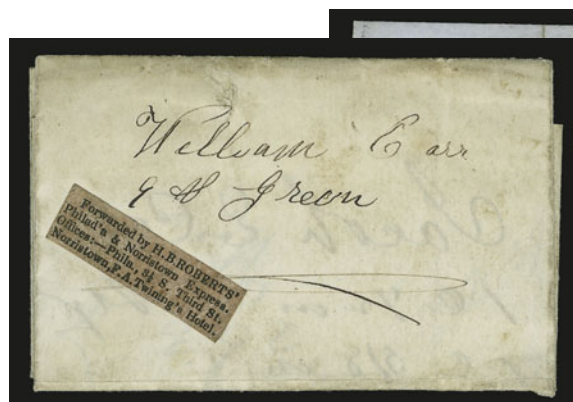 William Carr
9 & Green
Forwarded by H.B.ROBERTS'
Philad'a & Norristown Express.
Offices:—Phila., 3½ S. Third St.
Norristown, F.A.Twining's Hotel.